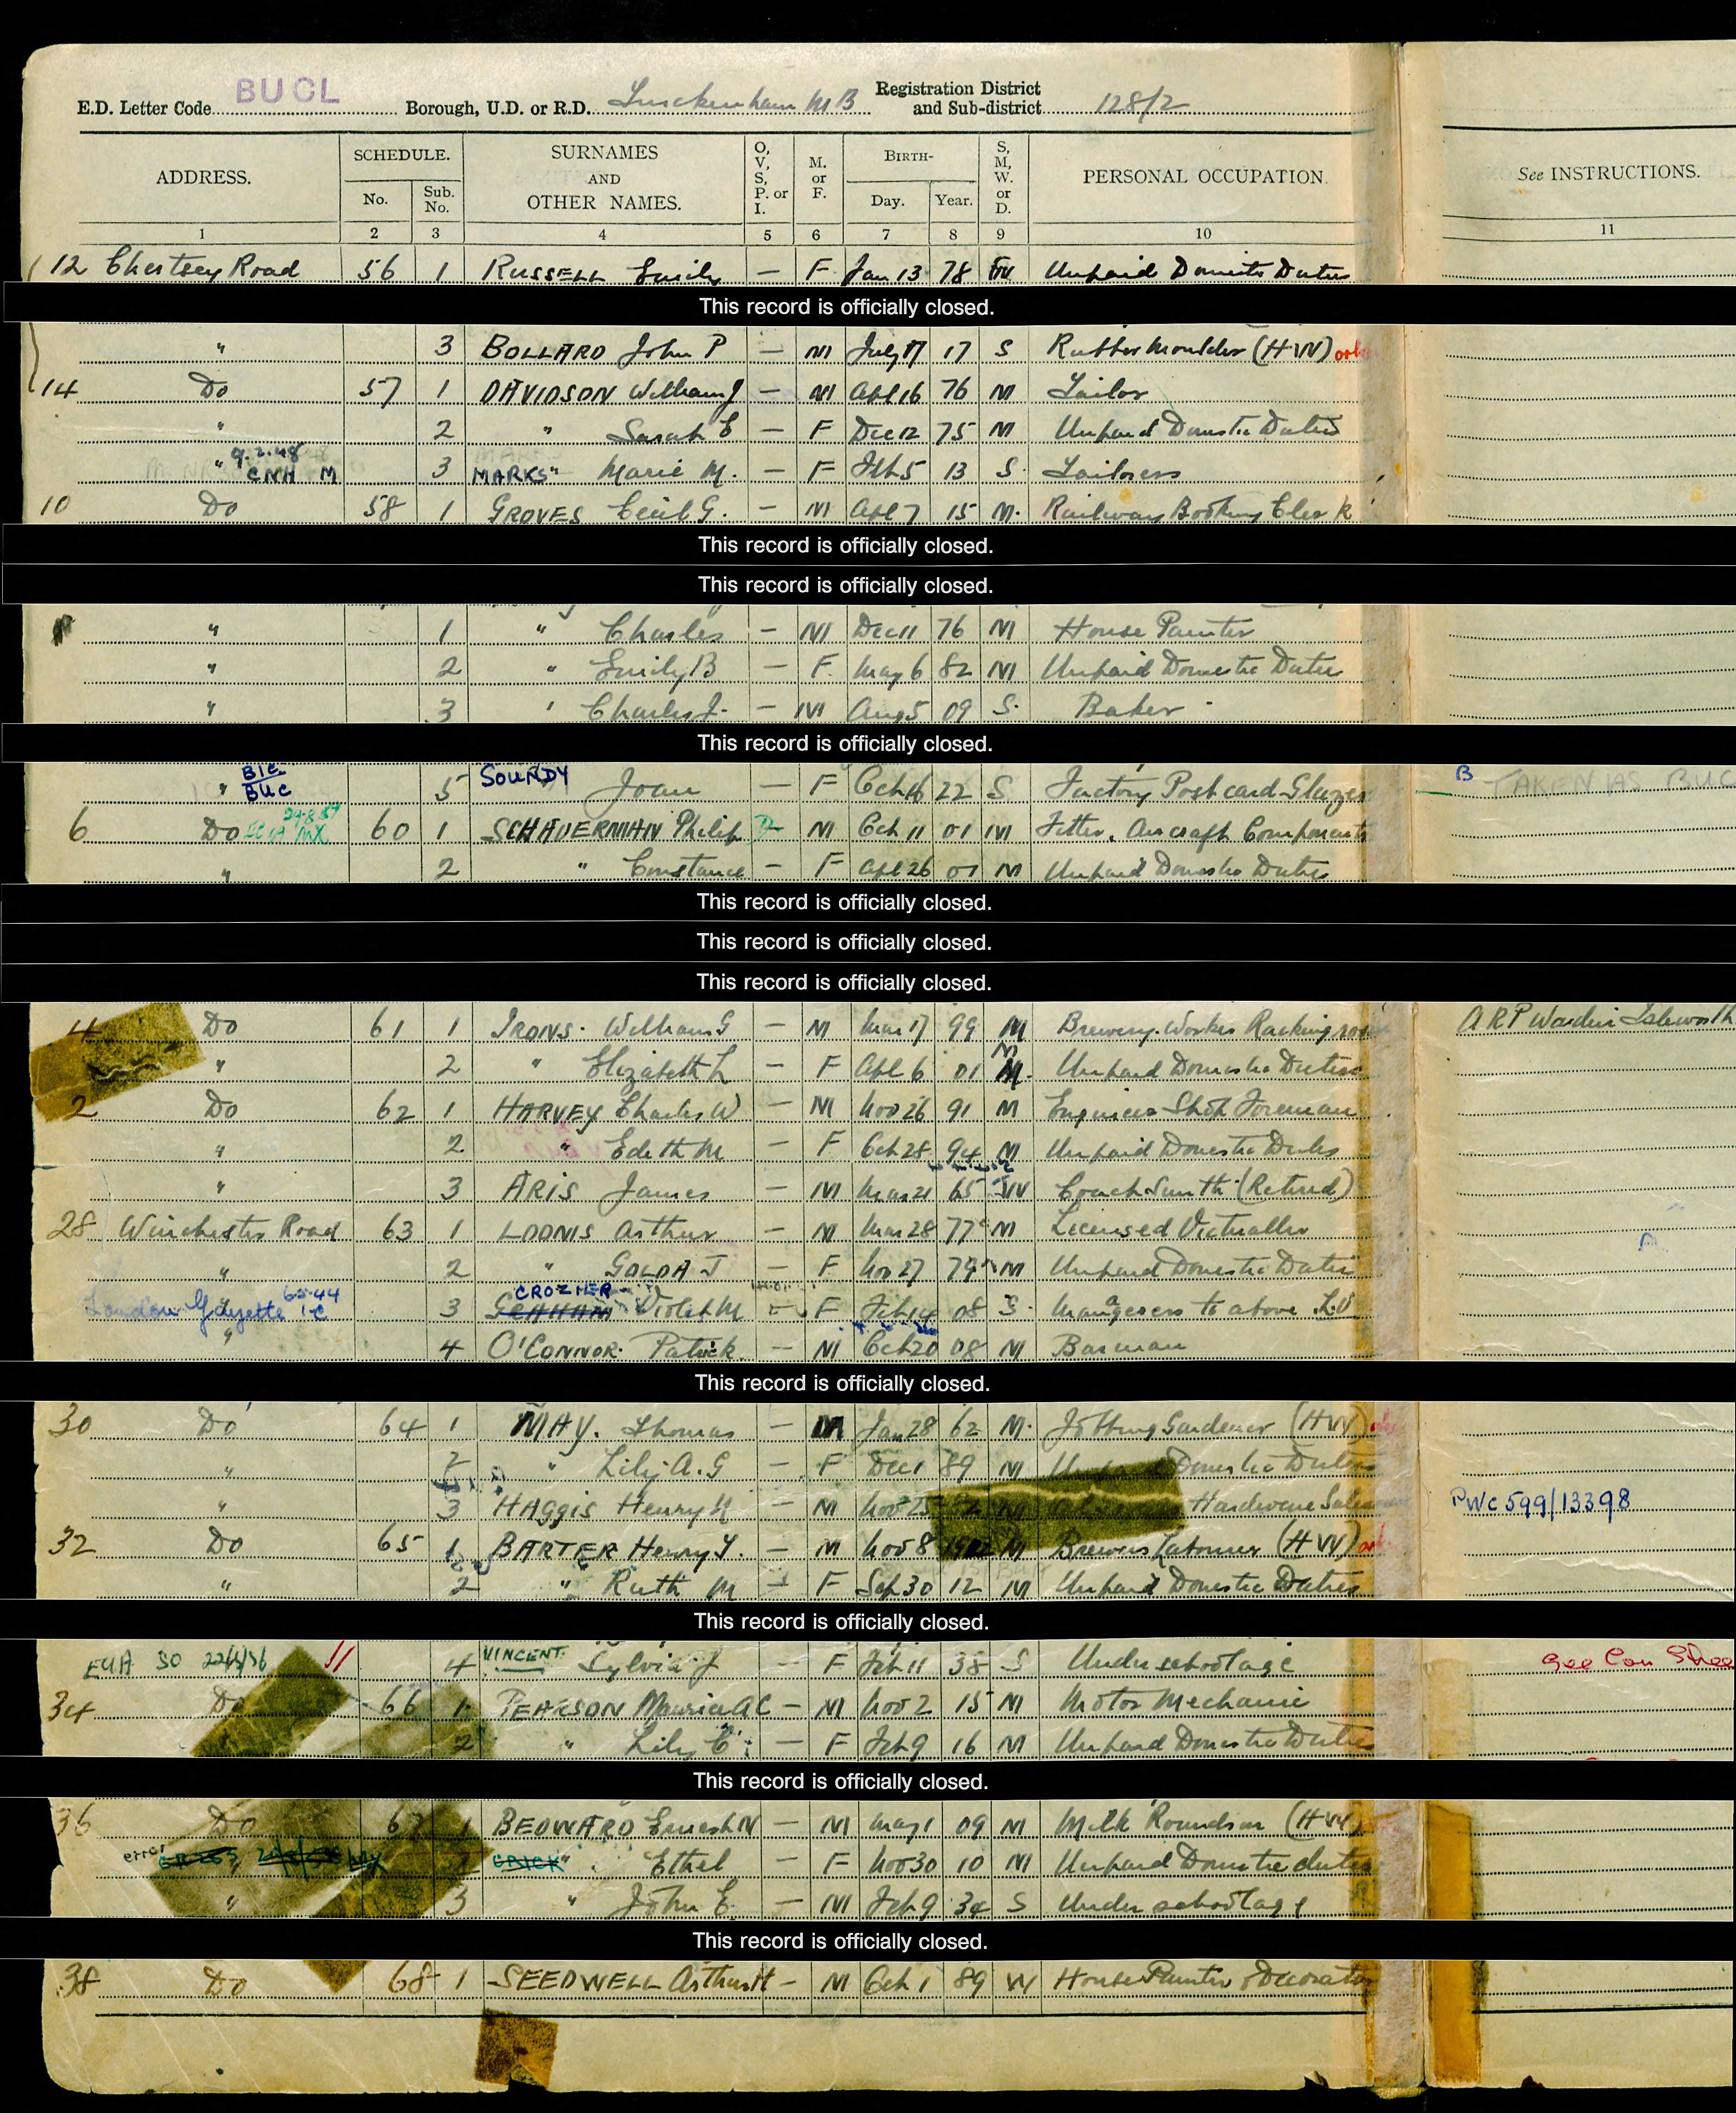 E.D. Letter Code BUCL Borough, U.D. or R.D. Twickenham M B Registration District and Sub-district 128/2
ADDRESS. SCHEDULE. No. Sub. No. SURNAMES AND OTHER NAMES. O, V, S, P. or I. M. or F. BIRTH- Day. Year. S, M, W. or D. PERSONAL OCCUPATION. See INSTRUCTIONS.
1 2 3 4 5 6 7 8 9 10 11
12 Chertsey Road 56 1 RUSSELL Emily — F Jan 13 78 W Unpaid Domestic Duties
This record is officially closed.
" 3 BOLLARD John P — M July 17 17 S Rubber Moulder (HW)
14 Do 57 1 DAVIDSON William J — M Apl 16 76 M Tailor
" 2 " Sarah E — F Dec 12 75 M Unpaid Domestic Duties
" 9.2.48 CNH M 3 MARKS " Marie M. — F Feb 5 13 S Tailoress
10 Do 58 1 GROVES Cecil G. — M Apl 7 15 M. Railway Booking Clerk
This record is officially closed.
This record is officially closed.
" 1 " Charles — M Dec 11 76 M House Painter
" 2 " Emily B — F May 6 82 M Unpaid Domestic Duties
" 3 " Charles J. — M Aug 5 09 S. Baker
This record is officially closed.
" BIC BUC 5 SOUNDY Joan — F Oct 16 22 S Factory Postcard Glazer B TAKEN AS BUC
6 Do 29.8.57 60 1 SCHAUERMAN Philip M Oct 11 01 M Fitter. Aircraft Components
" 2 " Constance — F Apl 26 01 M Unpaid Domestic Duties
This record is officially closed.
This record is officially closed.
This record is officially closed.
4 Do 61 1 IRONS. William G — M Mar 17 99 M Brewery Worker Racking room ARP Warden Isleworth
" 2 " Elizabeth L — F Apl 6 01 M. Unpaid Domestic Duties
2 Do 62 1 HARVEY Charles W — M Nov 26 91 M Engineers Shop Foreman
" 2 " Edith M — F Oct 28 94 M Unpaid Domestic Duties
" 3 ARIS James — M Mar 21 65 W Coach Smith (Retired)
28 Winchester Road 63 1 LOOMS Arthur — M Mar 28 77 M Licensed Victualler
" 2 " GOLDA J — F Nov 27 79 M Unpaid Domestic Duties
London Gazette 6-5-44 3 CROZHER Violet M — F Feb 14 08 S. Manageress to above L.V
" 4 O'CONNOR. Patrick. — M Oct 20 08 M Barman
This record is officially closed.
30 Do 64 1 MAY. Thomas — M Jan 28 62 M. Jobbing Gardener (HW)
" 2 " Lily A. G — F Dec 1 89 M Unpaid Domestic Duties
" 3 HAGGIS Henry — M Nov 25 Hardware Salesman PWC 599/13398
32 Do 65 1 BARTER Henry — M Nov 8 M Brewers Labourer (HW)
" 2 " Ruth M — F Sep 30 12 M Unpaid Domestic Duties
This record is officially closed.
4 VINCENT. Sylvia J — F Feb 11 38 S Under school age See Con Shee
34 Do 66 1. PEARSON Maurice A C — M Nov 2 15 M Motor Mechanic
2 " Lily — F Feb 9 16 M Unpaid Domestic Duties
This record is officially closed.
36 Do 67 1 BEDWARD Ernest N — M May 1 09 M Milk Roundsm (HW)
error " CRICK " Ethel — F Nov 30 10 M Unpaid Domestic duties
" 3 " John E. — M Feb 9 34 S Under school age
This record is officially closed.
38 Do 68 1 SEEDWELL Arthur H — M Oct 1 89 W House Painter & Decorator